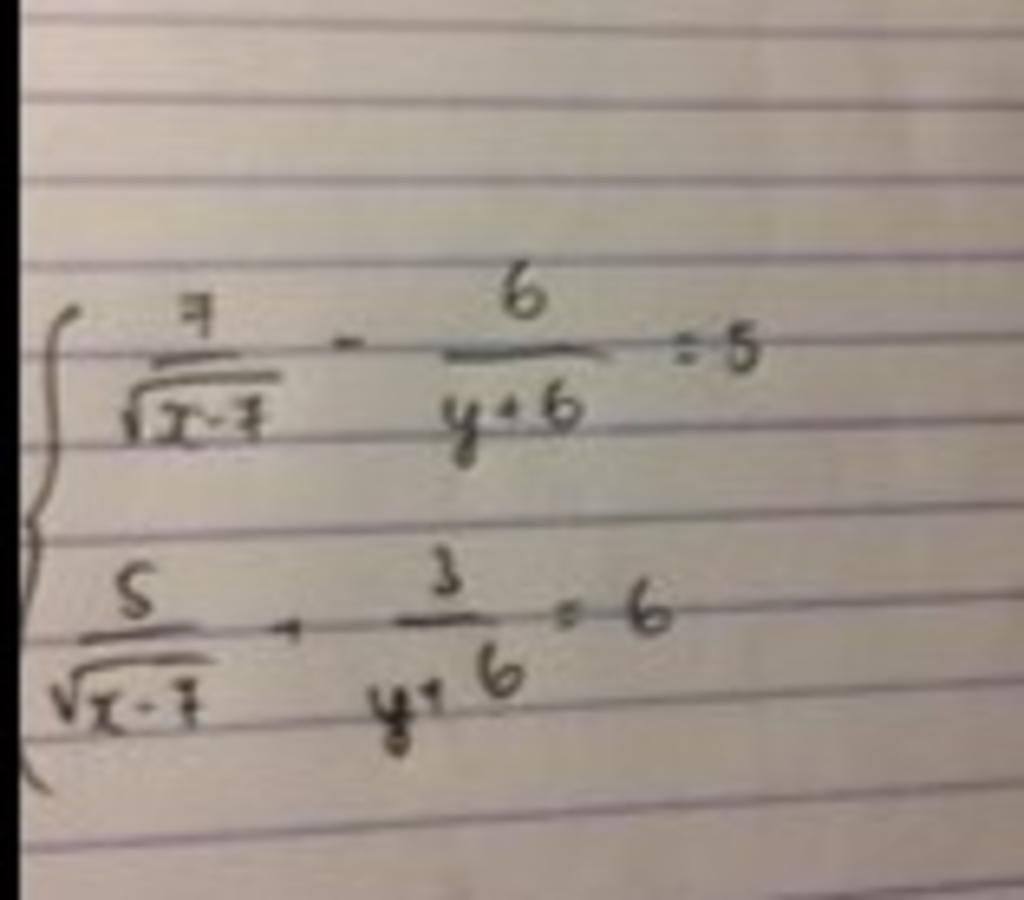 7/√(x-7) - 6/(y+6) = 5
5/√(x-7) + 3/(y+6) = 6